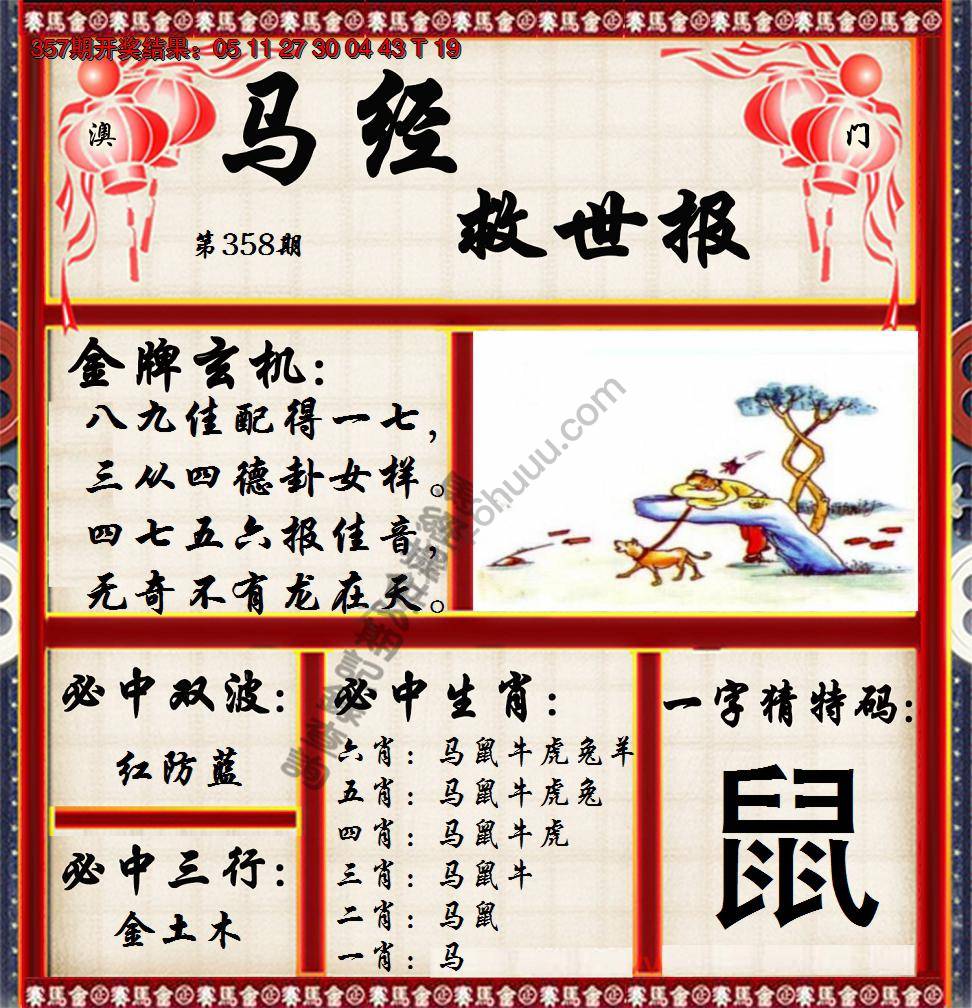 赛馬會
357期开奖结果：05 11 27 30 04 43 T 19
澳门
马经
救世报
第358期
金牌玄机：
八九佳配得一七，
三从四德卦女样。
四七五六报佳音，
无奇不有龙在天。
必中双波：
红防蓝
必中三行：
金土木
必中生肖：
六肖：马鼠牛虎兔羊
五肖：马鼠牛虎兔
四肖：马鼠牛虎
三肖：马鼠牛
二肖：马鼠
一肖：马
一字猜特码：
鼠